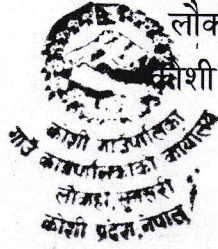 लौक
कोशी
कोशी गाउँपालिका
गाउँ कार्यपालिकाको कार्यालय
लौकही, सुनसरी
कोशी प्रदेश, नेपाल